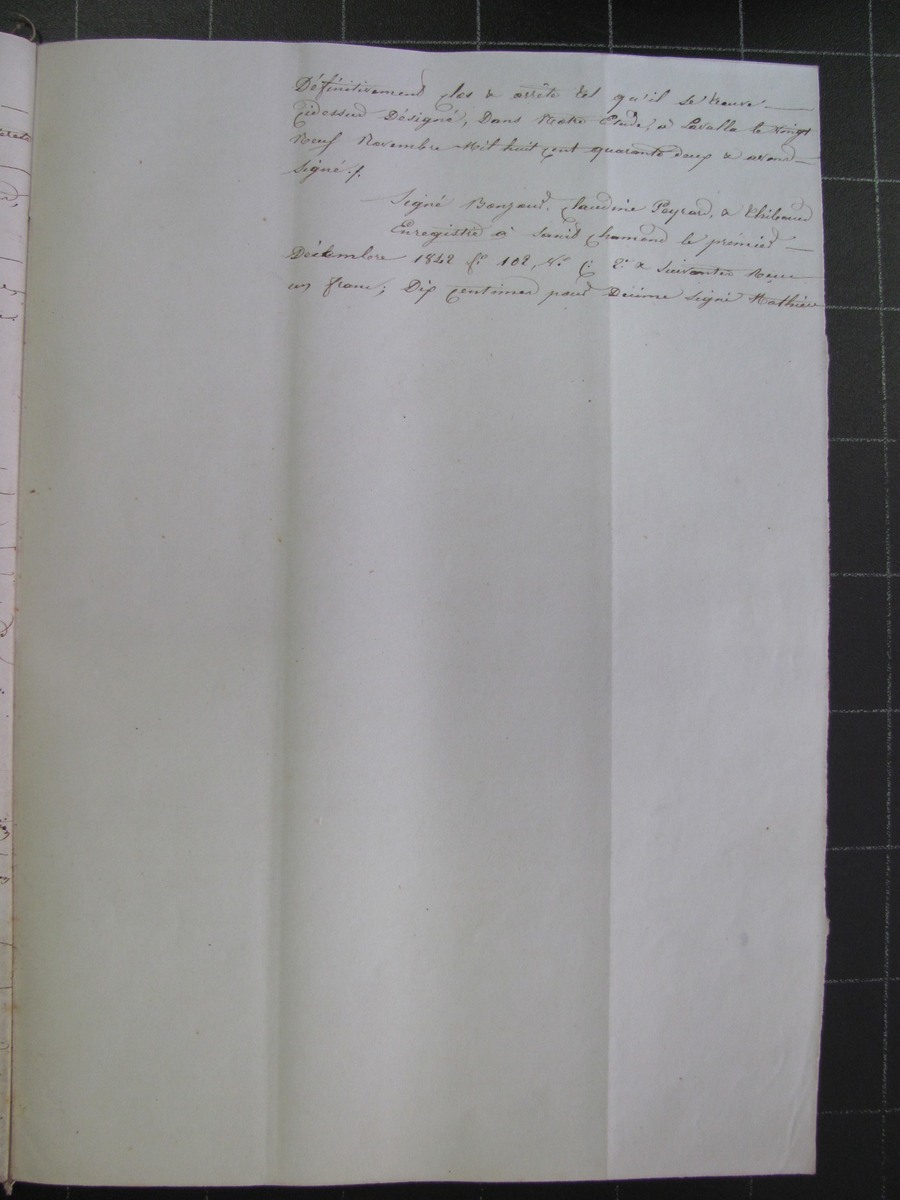 Définitivement clos & arrêté tel qu'il se trouve
Cidessus Désigné, Dans Notre Etude, à Lavalla le Vingt
Neuf Novembre Mil huit cent quarante deux & avons
Signé ./.
Signé Bonjour, Claudine Peyrard, & Thibaud
Enregistré à Saint Chamond le premier
Décembre 1842 f.º 102, V.º C. 2.e & Suivantes Reçu
un franc ; Dix centimes pour Décime Signé Mathieu